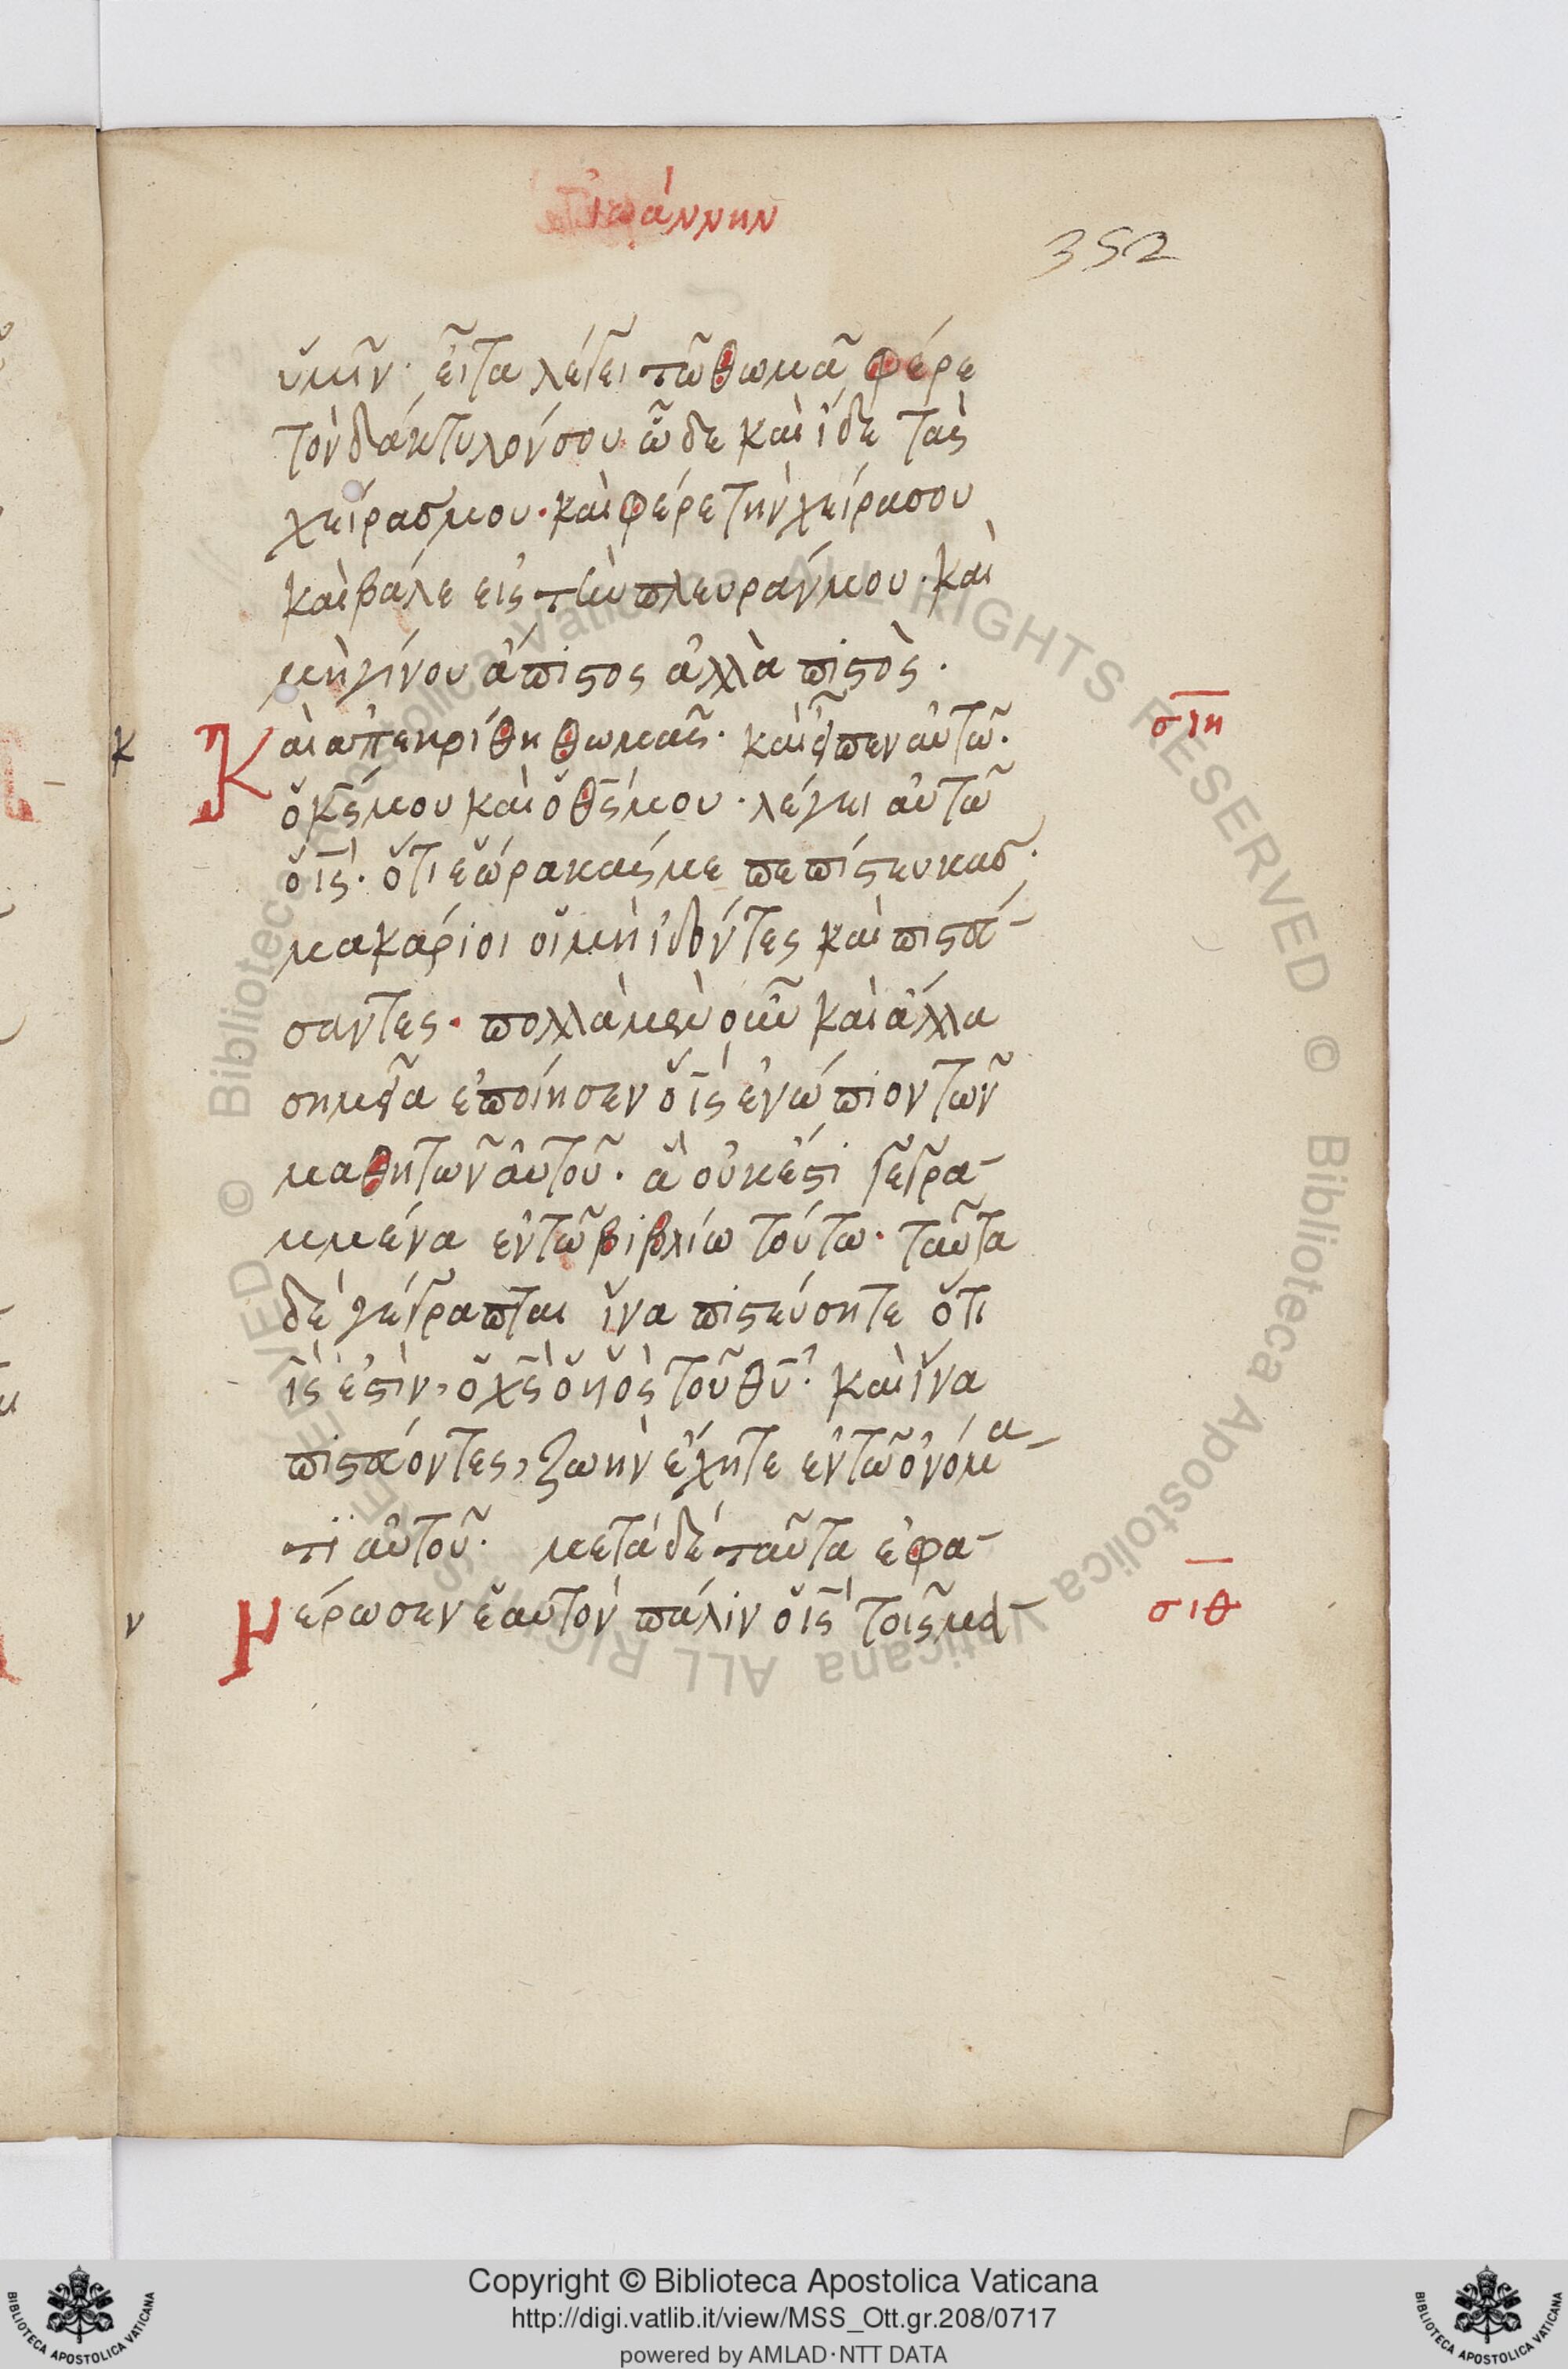 ἰωάννην
352
ὑμῖν· εἶτα λέγει τῶ θωμᾶ φέρε
τὸν δάκτυλόν σου ὧδε καὶ ἴδε τὰς
χεῖρας μου· καὶ φέρε τὴν χεῖρα σου
καὶ βάλε εἰς τὴν πλευράν μου· καὶ
μὴ γίνου ἄπιστος ἀλλὰ πιστὸς·
σιη
κ
Καὶ ἀπεκρίθη θωμᾶς· καὶ εἶπεν αὐτῶ·
ὁ κς μου καὶ ὁ θς μου· λέγει αὐτῶ
ὁ ις· ὅτι ἑώρακάς με πεπίστευκας·
μακάριοι οἱ μὴ ἰδόντες καὶ πιστεύ-
σαντες· πολλὰ μὲν οὖν καὶ ἄλλα
σημεῖα ἐποίησεν ὁ ις ἐνώπιον τῶν
μαθητῶν αὐτοῦ· ἃ οὐκ ἔστι γεγρα-
μμένα ἐν τῶ βιβλίω τούτω· ταῦτα
δὲ γέγραπται ἵνα πιστεύσητε ὅτι
ις ἐστὶν, ὁ χς ὁ υἱὸς τοῦ θυ· καὶ ἵνα
πιστεύοντες, ζωὴν ἔχητε ἐν τῶ ὀνόμα-
τι αὐτοῦ· μετὰ δὲ ταῦτα ἐφα-
σιθ
ν
Νέρωσεν ἑαυτὸν πάλιν ὁ ις τοῖς μα-
© Biblioteca Apostolica Vaticana ALL RIGHTS RESERVED © Biblioteca Apostolica Vaticana ALL RIGHTS RESERVED
Copyright © Biblioteca Apostolica Vaticana
http://digi.vatlib.it/view/MSS_Ott.gr.208/0717
powered by AMLAD·NTT DATA
BIBLIOTECA APOSTOLICA VATICANA
BIBLIOTECA APOSTOLICA VATICANA